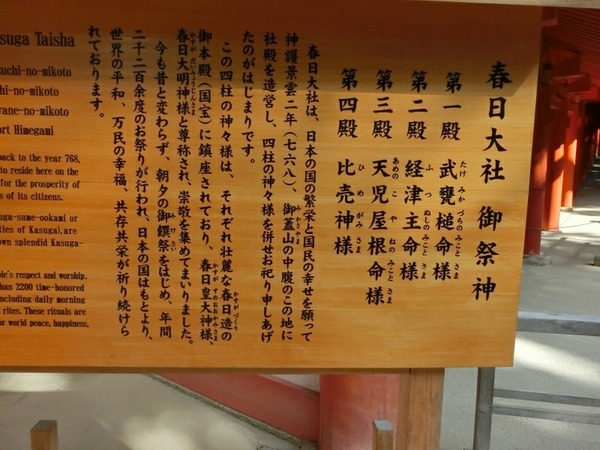 春日大社 御祭神
第一殿 武甕槌命様
第二殿 経津主命様
第三殿 天児屋根命様
第四殿 比売神様
春日大社は、日本の国の繁栄と国民の幸せを願って
神護景雲二年(七六八)、御蓋山の中腹のこの地に
社殿を造営し、四柱の神々様を併せお祀り申しあげ
たのがはじまりです。
この四柱の神々様は、それぞれ壮麗な春日造の
御本殿(国宝)に鎮座されており、春日皇大神様、
春日大明神様と尊称され、崇敬を集めてまいりました。
今も昔と変わらず、朝夕の御饌祭をはじめ、年間
二千二百余度のお祭りが行われ、日本の国はもとより、
世界の平和、万民の幸福、共存共栄が祈り続けら
れております。
suga Taisha
zuchi-no-mikoto
hi-no-mikoto
yane-no-mikoto
ort Himegami
back to the year 768,
to reside here on the
for the prosperity of
s of its citizens.
uga-sume-ookami or
ties of Kasuga), are
own splendid Kasuga-
le's respect and worship.
han 2200 time-honored
ncluding daily morning
rites. These rituals are
or world peace, happiness,